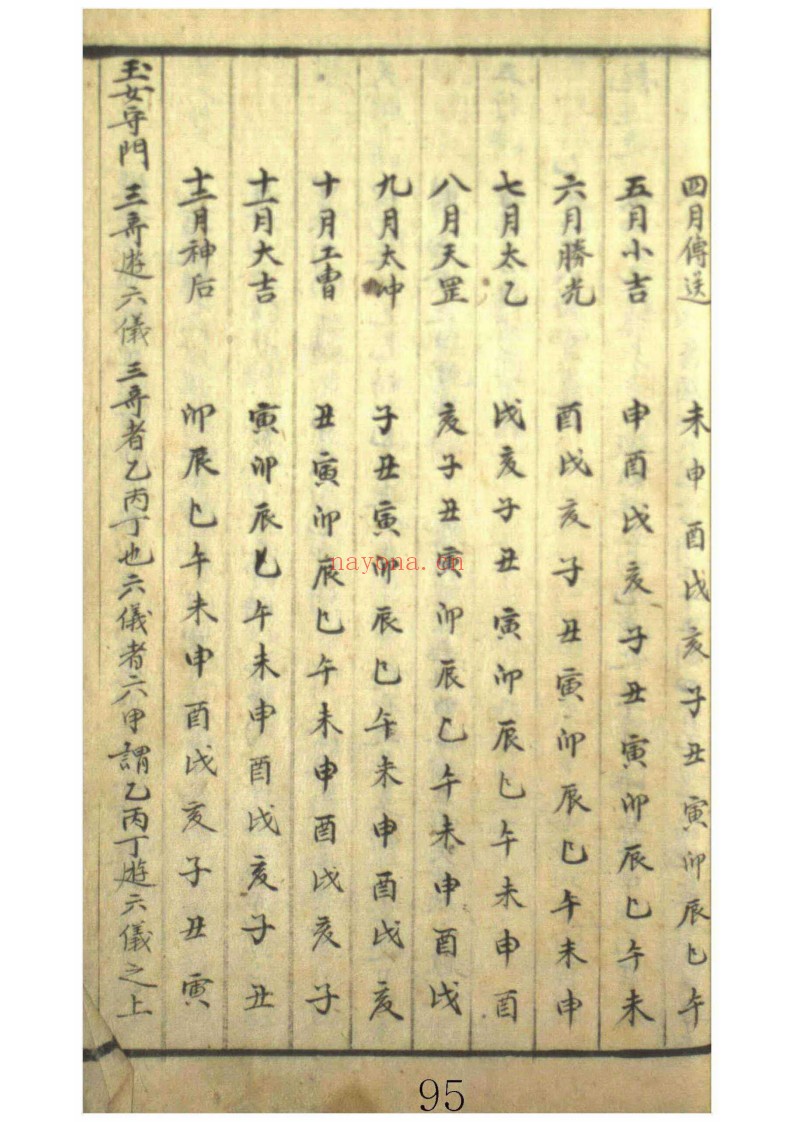 四月傳送 未申酉戌亥子丑寅卯辰巳午
五月小吉 申酉戌亥子丑寅卯辰巳午未
六月勝光 酉戌亥子丑寅卯辰巳午未申
七月太乙 戌亥子丑寅卯辰巳午未申酉
八月天罡 亥子丑寅卯辰巳午未申酉戌
九月太冲 子丑寅卯辰巳午未申酉戌亥
十月工曺 丑寅卯辰巳午未申酉戌亥子
十一月大吉 寅卯辰巳午未申酉戌亥子丑
十二月神后 卯辰巳午未申酉戌亥子丑寅
玉女守門 三竒遊六儀 三竒者乙丙丁也六儀者六甲謂乙丙丁遊六儀之上
nayona.cn
95